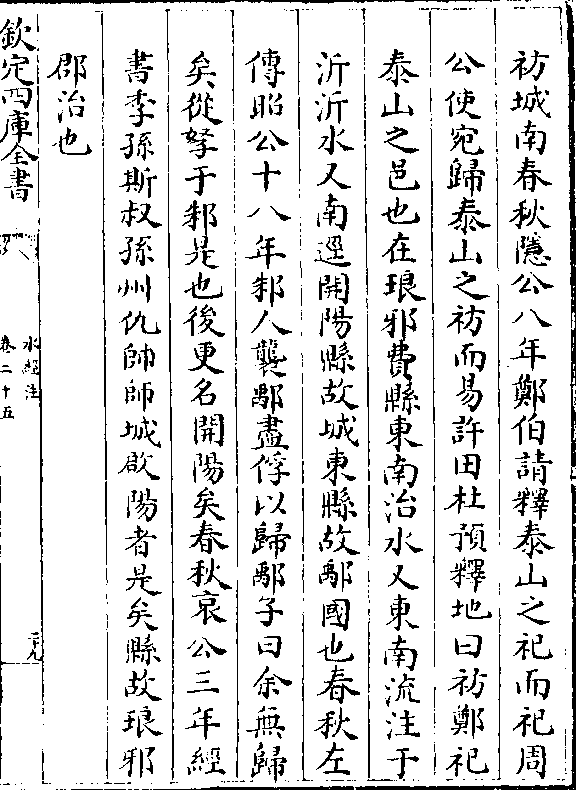 祊城南春秋隱公八年鄭伯請釋泰山之祀而祀周
公使宛歸泰山之祊而易許田杜預釋地曰祊鄭祀
泰山之邑也在琅邪費縣東南治水又東南流注于
沂沂水又南逕開陽縣故城東縣故鄅國也春秋左
傳昭公十八年邾人襲鄅盡俘以歸鄅子曰余無歸
矣從孥于邾是也後更名開陽矣春秋哀公三年經
書季孫斯叔孫州仇帥師城啟陽者是矣縣故琅邪
郡治也
欽定四庫全書
水經注
卷二十五